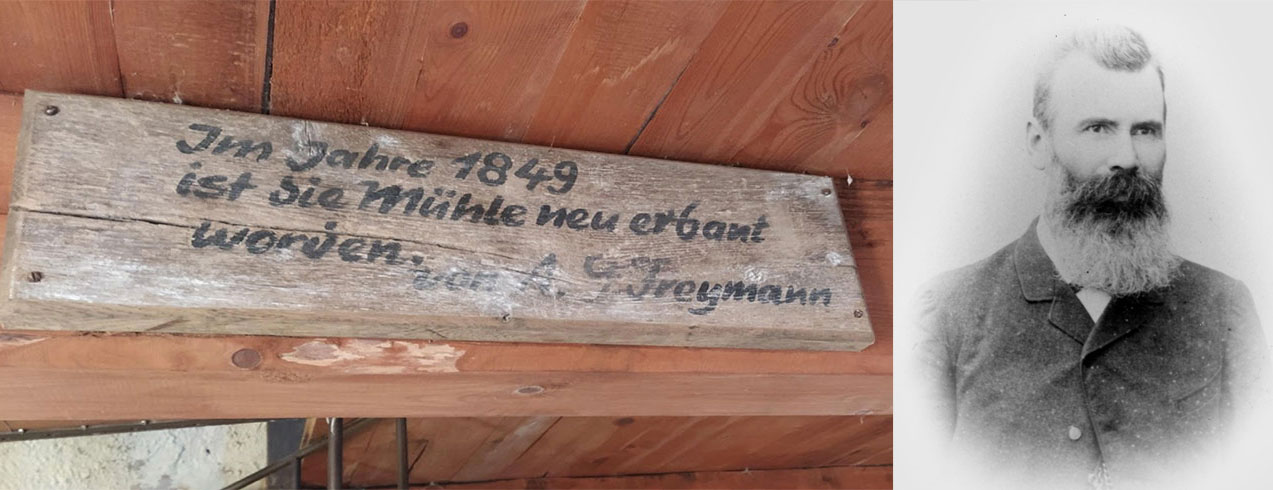 Im Jahre 1849
ist die Mühle neu erbaut
worden.
von A. Freymann